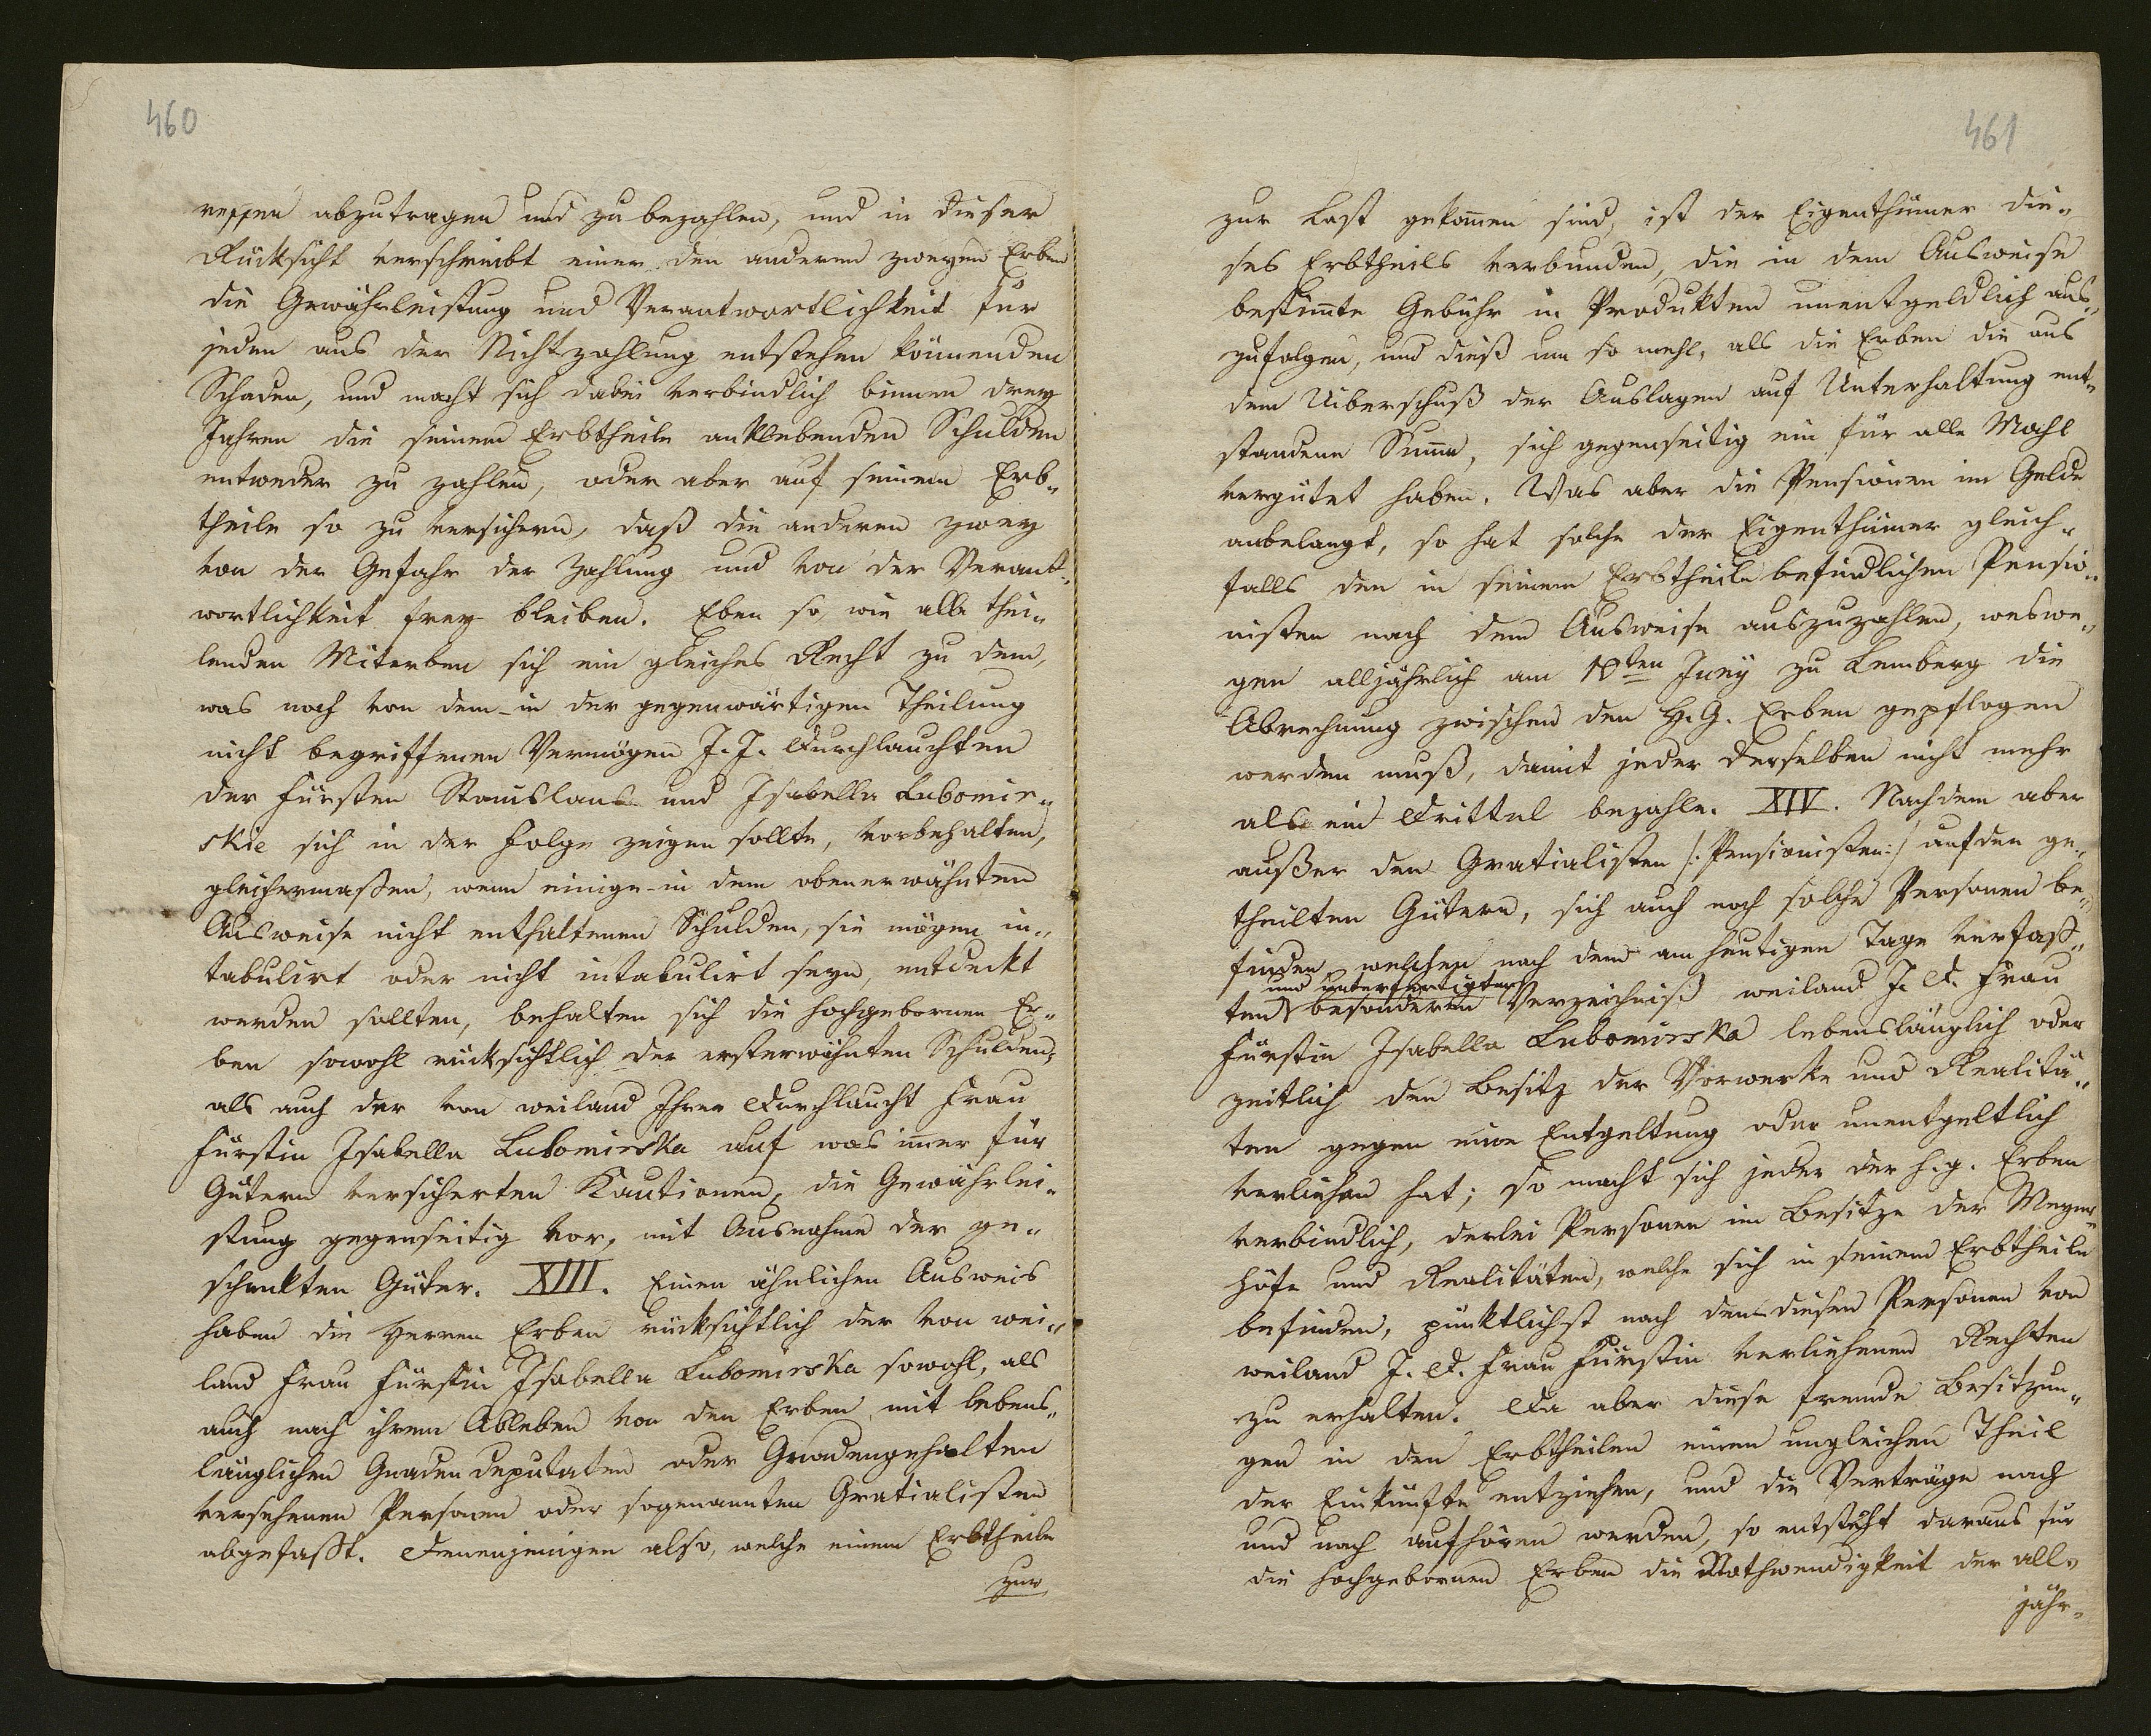 460
ressen abzutragen und zu bezahlen, und in dieser
Rücksicht verschreibt einer den anderen zweyen Erben
die Gewährleistung und Verantwortlichkeit für
jeden aus der Nichtzahlung entstehen könnenden
Schaden, und macht sich dabei verbindlich binnen drey
Jahren die seinem Erbtheile anklebenden Schulden
entweder zu zahlen, oder aber auf seinem Erb„
theile so zu versichern, daß die anderen zwey
von der Gefahr der Zahlung und von der Verant„
wortlichkeit frey bleiben. Eben so, wie alle thei„
lenden Miterben sich ein gleiches Recht zu dem,
was noch von dem in der gegenwärtigen Theilung
nicht begriffenen Vermögen J. J. Durchlauchten
der Fürsten Stanislaus und Isabella Lubomir„
skie sich in der Folge zeigen sollte, vorbehalten,
gleichermaßen, wenn einige in dem obenerwähnten
Ausweise nicht enthaltenen Schulden, sie mögen in„
tabulirt oder nicht intabulirt seyn, entdeckt
werden sollten, behalten sich die hochgebornen Er„
ben sowohl rücksichtlich der ersterwähnten Schulden,
als auch der von weiland Ihrer Durchlaucht Frau
Fürstin Isabella Lubomirska auf was im̄er für
Gütern versicherten Kautionen, die Gewährlei„
stung gegenseitig vor, mit Ausnahme der ge„
schenkten Güter. XIII. Einen ähnlichen Ausweis
haben die Herren Erben rücksichtlich der von wei„
land Frau Fürstin Isabella Lubomirska sowohl, als
auch nach ihrem Ableben von den Erben mit lebens„
länglichen Gnadendeputaten oder Gnadengehalten
versehenen Personen oder sogenannten Gratialisten
abgefaßt. Denenjenigen also, welche einem Erbtheile
zur
461
zur Last gekom̄en sind, ist der Eigenthümer die„
ses Erbtheils verbunden, die in dem Ausweise
bestim̄te Gebühr in Produkten unentgeldlich aus„
zufolgen, und dieß um so mehl, als die Erben die aus
dem Uiberschuß der Auslagen auf Unterhaltung ent„
standene Sum̄e, sich gegenseitig ein für alle Mahl
vergütet haben. Was aber die Pensionen im Gelde
anbelangt, so hat solche der Eigenthümer gleich„
falls den in seinem Erbtheile befindlichen Pensio„
nisten nach dem Ausweise auszuzahlen, weswe„
gen alljährlich am 10ten Juny zu Lemberg die
Abrechnung zwischen den H. G. Erben gepflogen
werden muß, damit jeder derselben nicht mehr
als ein Drittel bezahle. XIV. Nachdem aber
außer den Gratialisten /: Pensionisten :/ auf den ge„
theilten Gütern, sich auch noch solche Personen be„
finden, welchen nach dem am heutigen Tage verfaß„
und unterfertigten
ten besonderen Verzeichniß weiland J. D. Frau
Fürstin Isabella Lubomirska lebenslänglich oder
zeitlich den Besitz der Vorwerke und Realitä„
ten gegen eine Entgeltung oder unentgeltlich
verliehen hat; so macht sich jeder der h. g. Erben
verbindlich, derlei Personen im Besitze der Meyer„
höfe und Realitäten, welche sich in seinem Erbtheile
befinden, pünktlichst nach den diesen Personen von
weiland J. D. Frau Fürstin verliehenen Rechten
zu erhalten. Da aber diese fremde Besitzun„
gen in den Erbtheilen einen ungleichen Theil
der Einkünfte entziehen, und die Verträge nach
und nach aufhören werden, so entsteht daraus für
die hochgebornen Erben die Nothwendigkeit der all„
jähr„